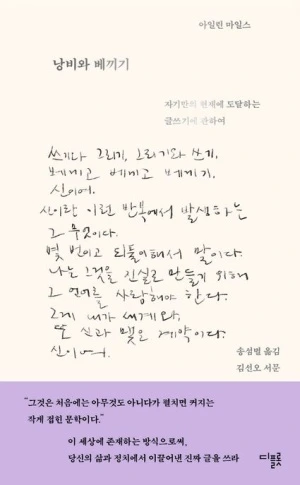 아일린 마일스
낭비와 베끼기
자기만의 현재에 도달하는
글쓰기에 관하여
쓰기와 그리기, 그리기와 쓰기,
베끼고 베끼고 베끼지,
신이여.
신이란 이런 반복에서 발생하는
그 무엇이다.
몇 번이고 되풀이해서 말이다.
나는 그것을 진실로 만들기 위해
그 언어를 사랑해야 한다.
그게 내가 세계와,
또 신과 맺은 계약이다.
신이여.
송섬별 옮김
김선오 서문
“그것은 처음에는 아무것도 아니다가 펼치면 커지는
작게 접힌 문학이다.”
이 세상에 존재하는 방식으로써,
당신의 삶과 정치에서 이끌어낸 진짜 글을 쓰라
디플롯